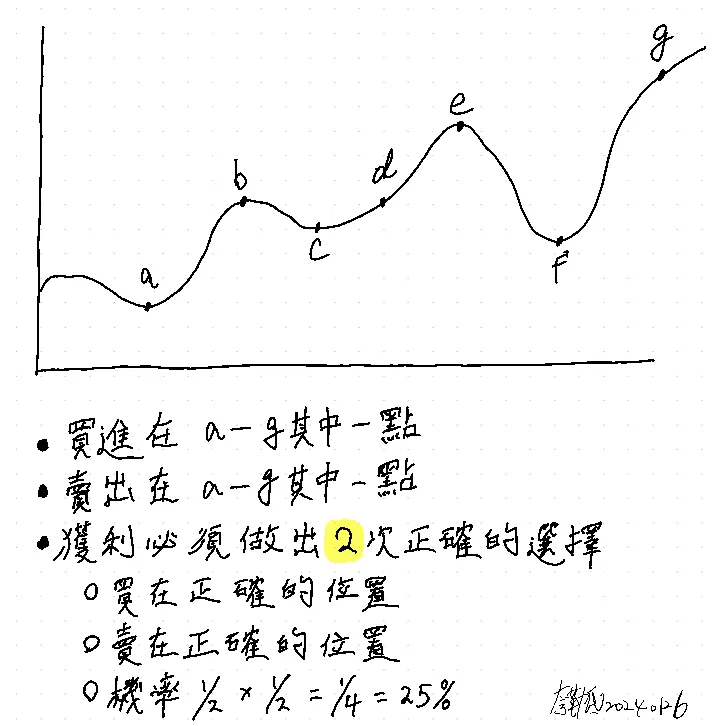 g
e
b
d
a
c
f
• 買進在 a－g其中一點
• 賣出在 a－g其中一點
• 獲利必須做出2次正確的選擇
○ 買在正確的位置
○ 賣在正確的位置
○ 機率 1/2 × 1/2 = 1/4 = 25%